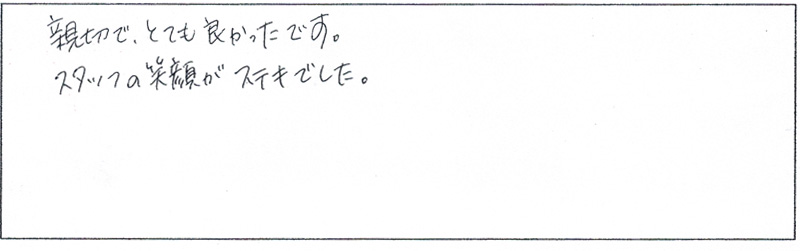 親切で、とても良かったです。
スタッフの笑顔がステキでした。